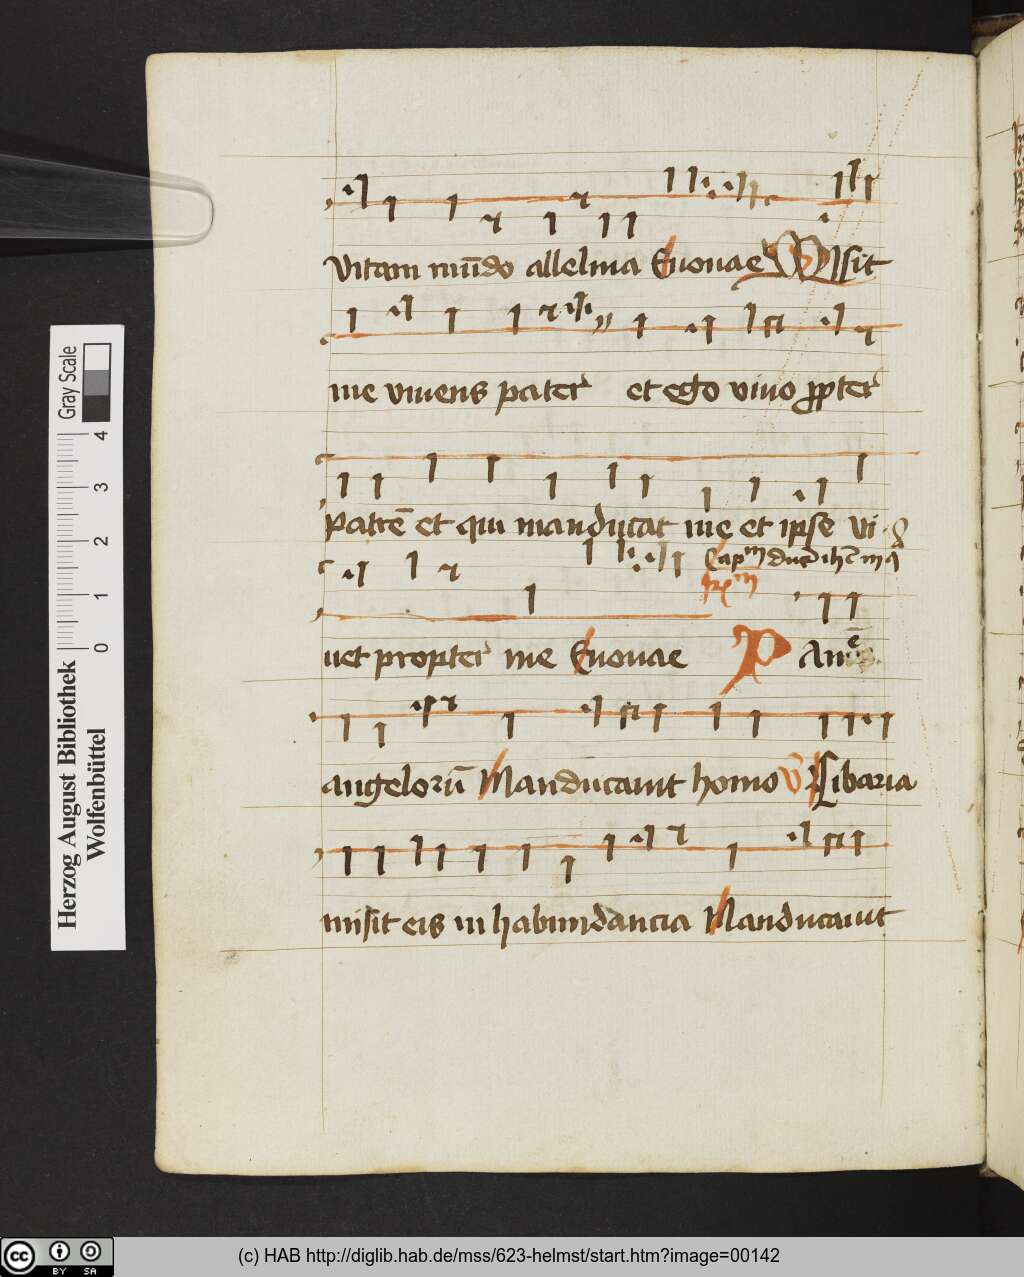 vitam mu̅do alleluia Euouae Misit
me viuens pater et ego viuo ꝓpter
Patre̅ et qui manducat me et ipse vi
Cap^m
uet propter me Euouae P Ane̅
angeloru̅ Manducauit homo V Cibaria
misit eis in habundancia Manducauit
Gray Scale
0 1 2 3 4
Herzog August Bibliothek
Wolfenbüttel
(c) HAB http://diglib.hab.de/mss/623-helmst/start.htm?image=00142
cc BY SA